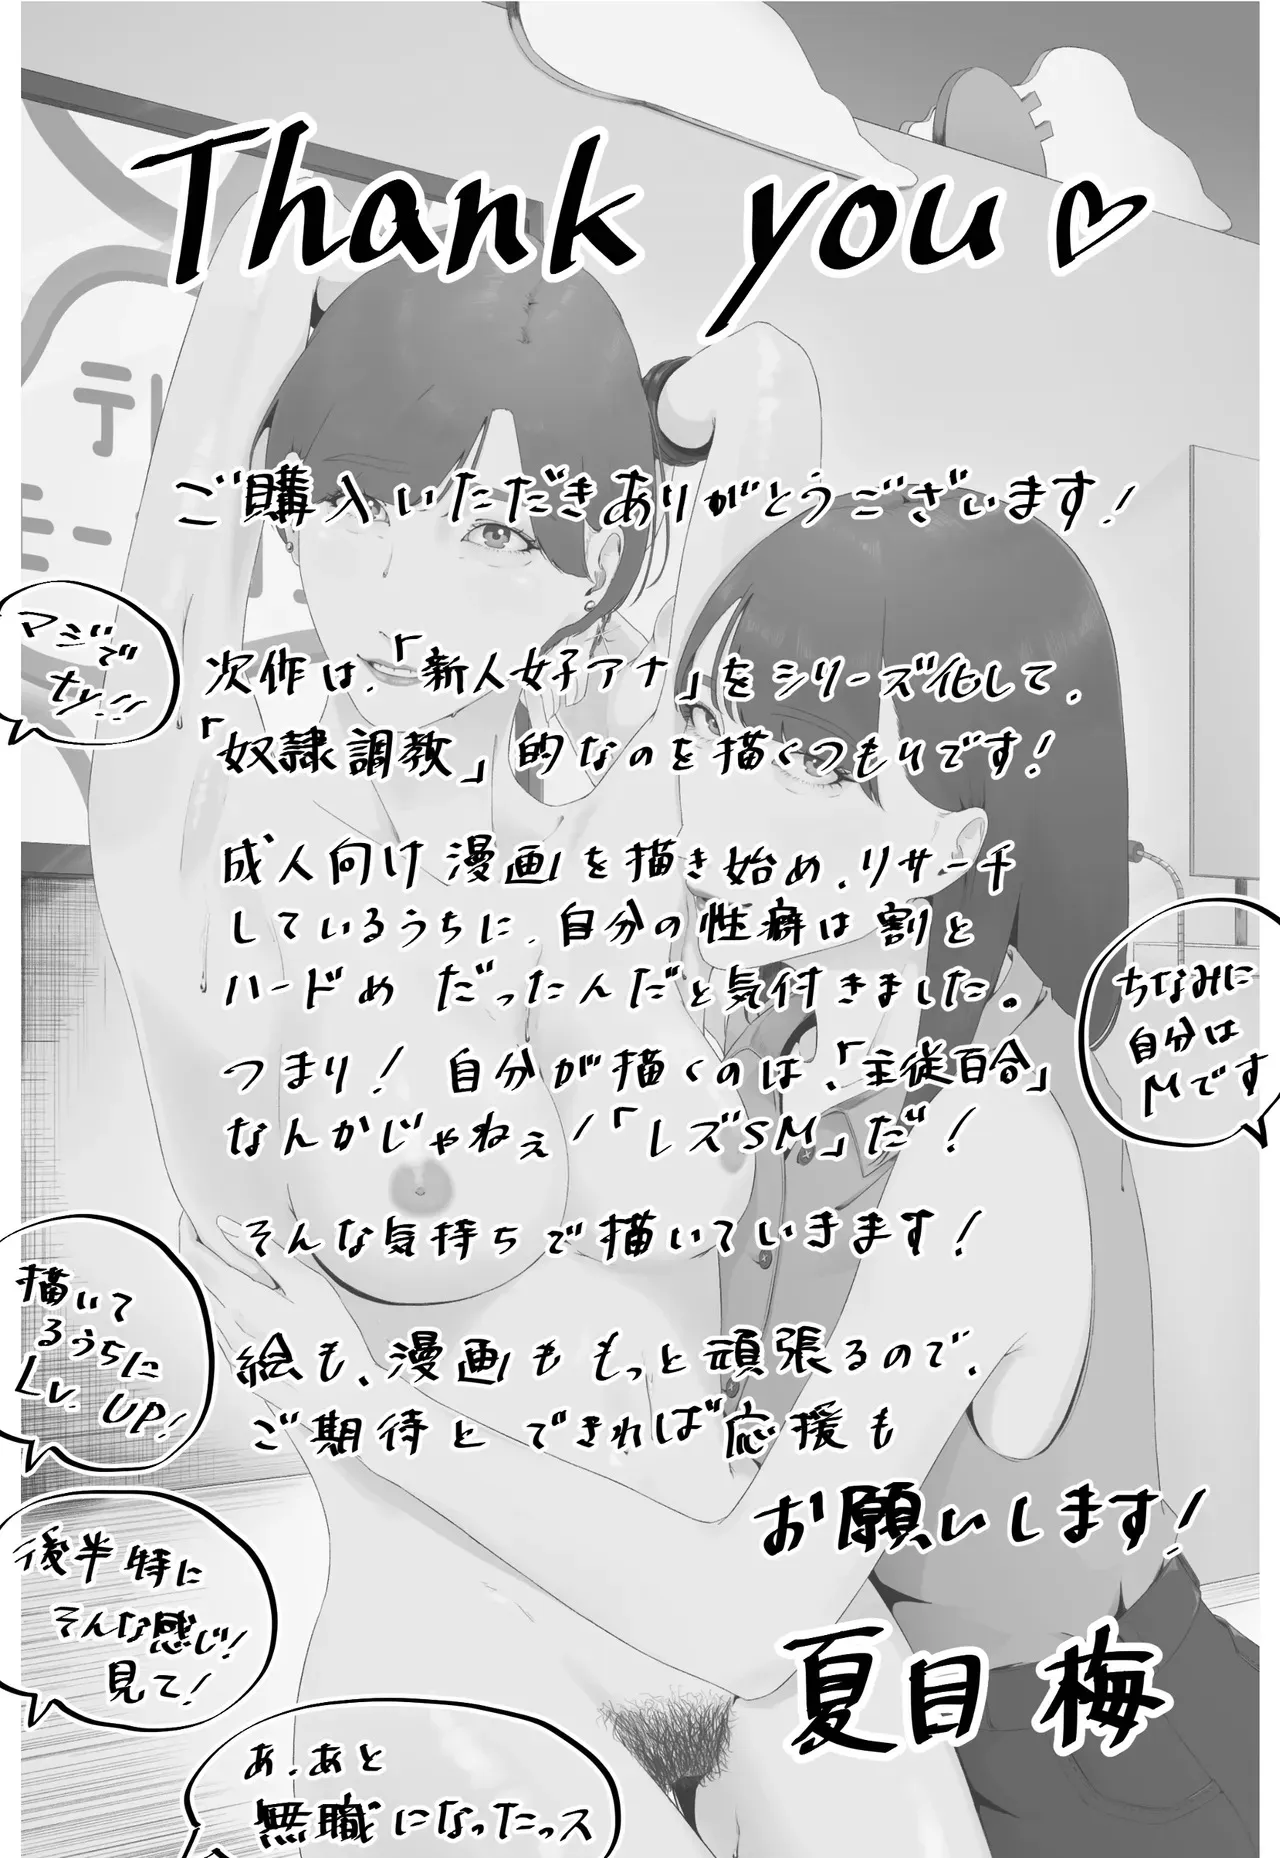 Thank you♡
テレ
モー
ご購入いただきありがとうございます！
マジで
ナレ!!
次作は、「新人女子アナ」をシリーズ化して、
「奴隷調教」的なのを描くつもりです！
成人向け漫画を描き始め、リサーチ
しているうちに、自分の性癖は割と
ハードめだったんだと気付きました。
ちなみに
自分は
Mです
つまり！自分が描くのは、「主従百合」
なんかじゃねぇ！「レズSM」だ！
そんな気持ちで描いていきます！
描いて
るうちに
Lv. UP!
絵も、漫画ももっと頑張るので、
ご期待とできれば応援も
お願いします！
後半特に
そんな感じ！
見て！
夏目 梅
あ、あと
無職になったっス